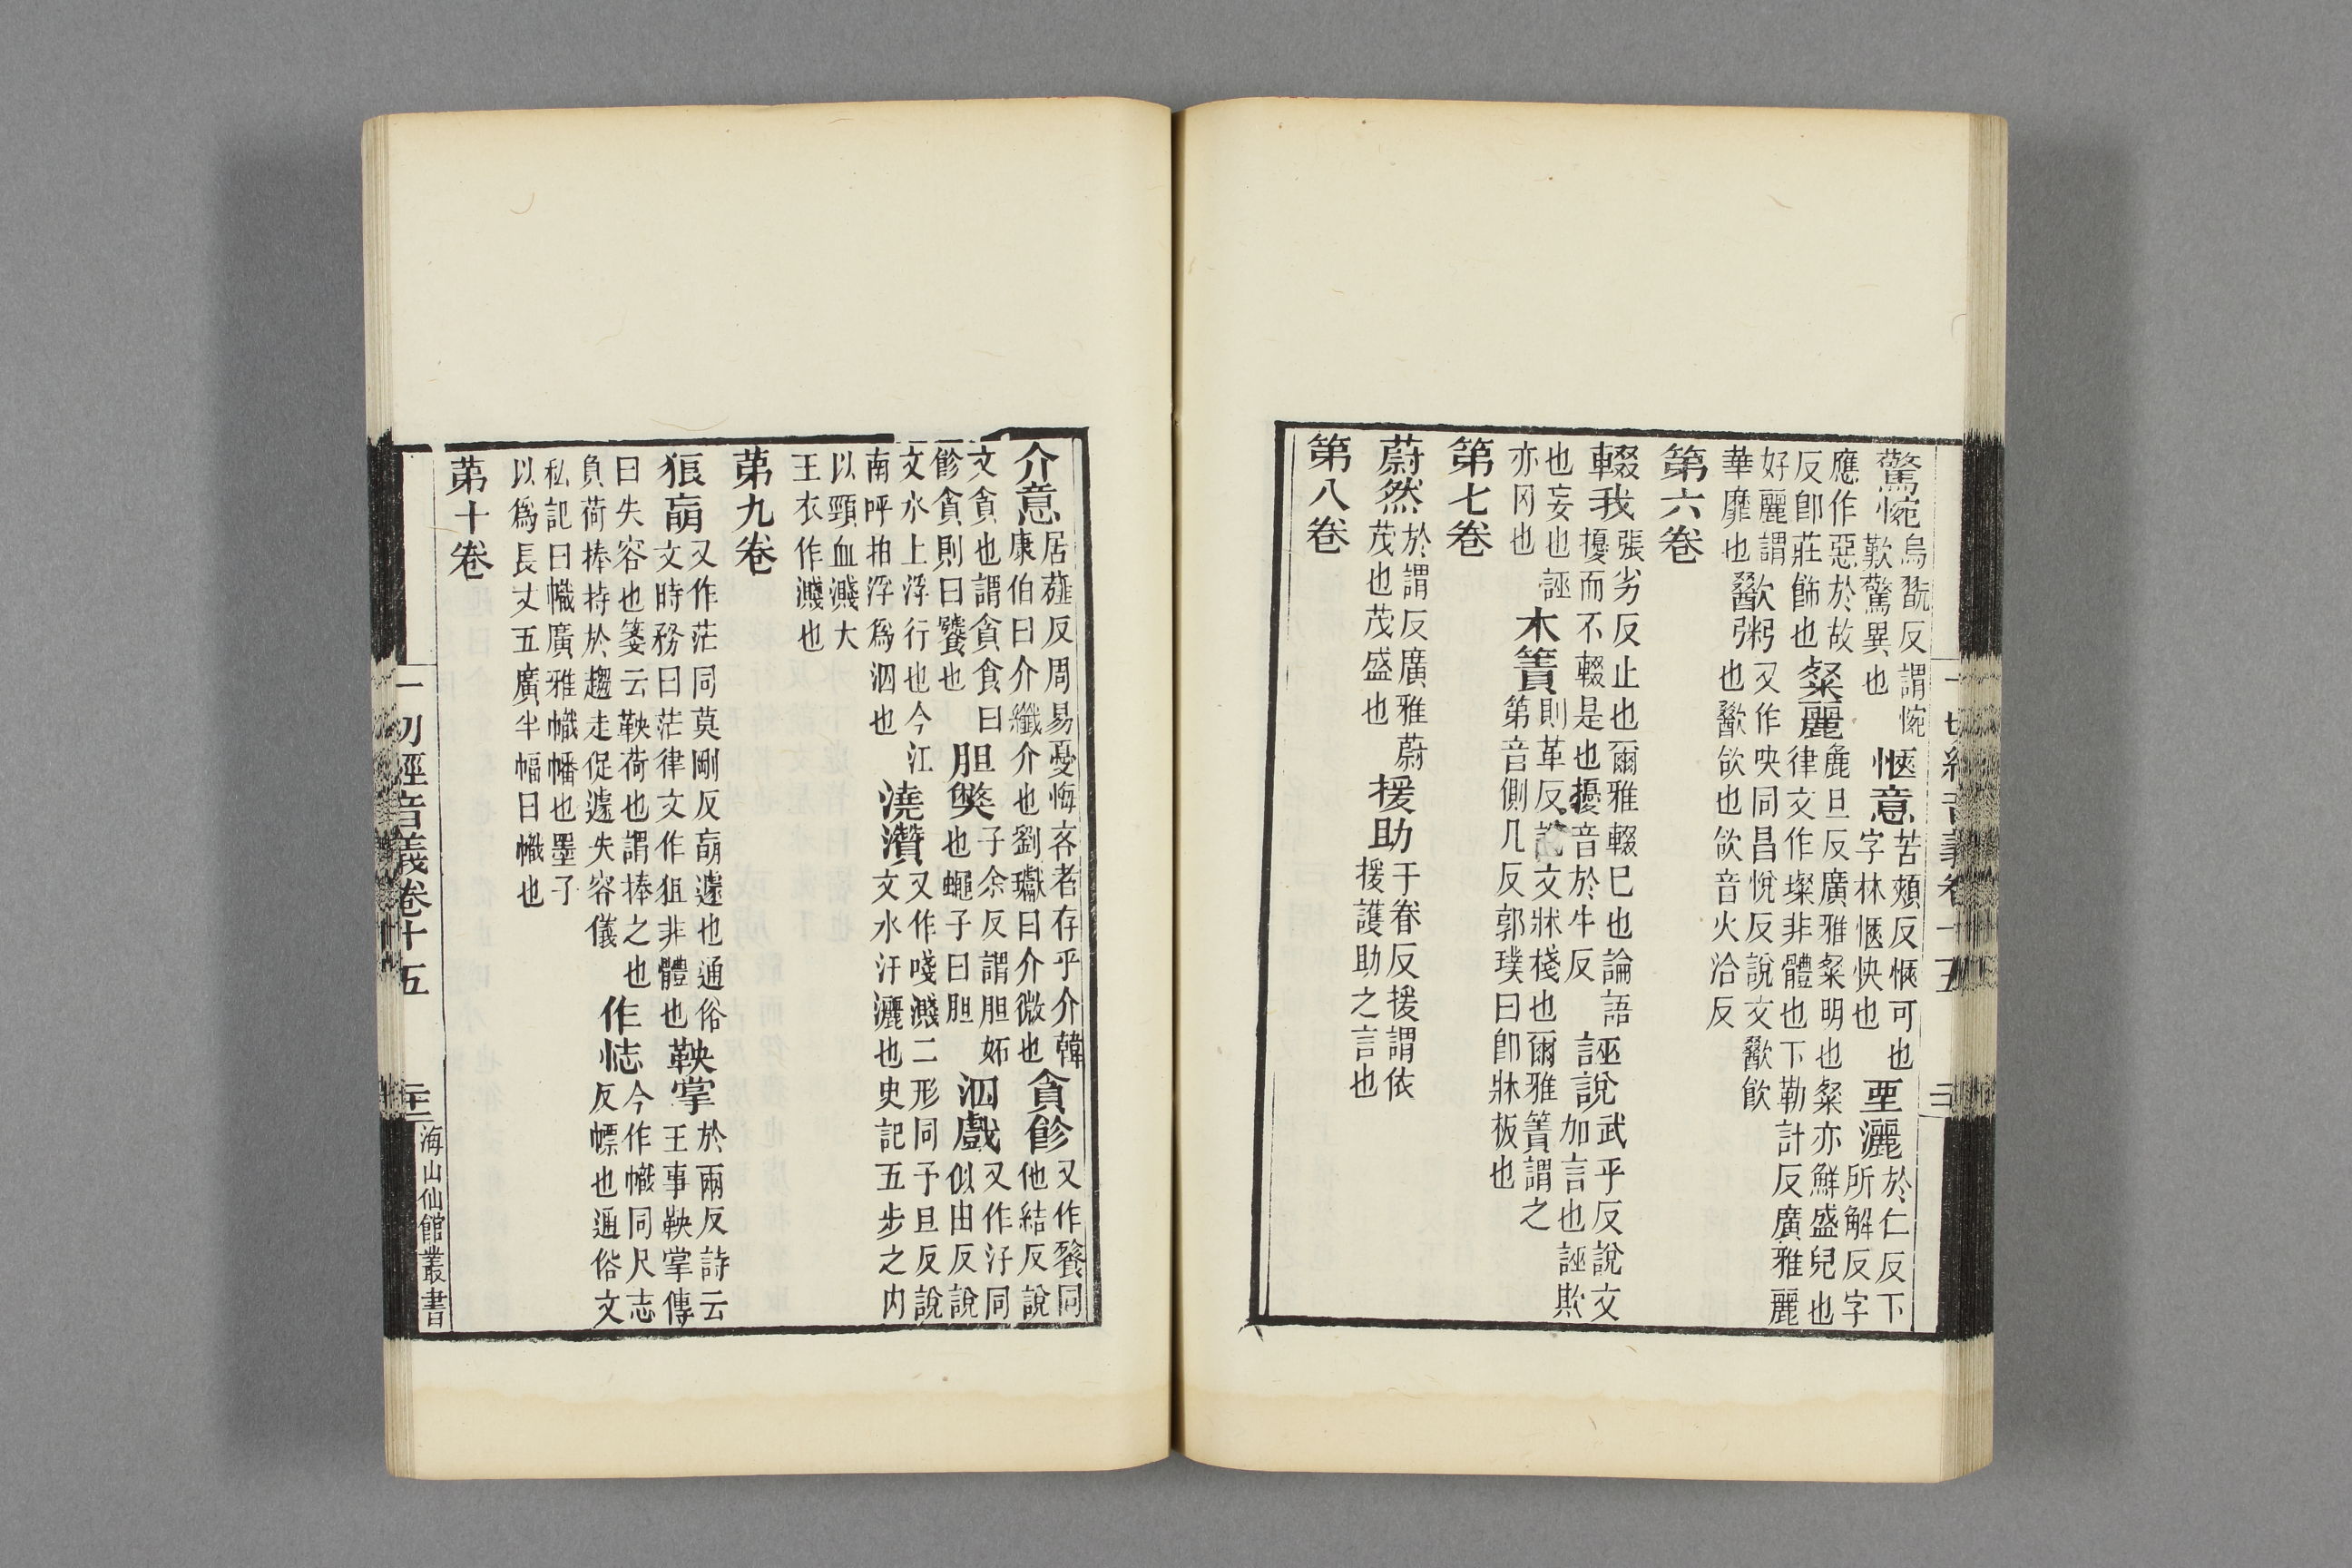 一切經音義卷十五
驚惋烏翫反謂惋歎驚異也愜意苦頰反愜可也字林愜快也亜灑於仁反下所解反字
應作惡於故反卽莊飾也粲麗麁旦反廣雅粲明也粲亦鮮盛皃也律文作璨非體也下勒計反廣雅麗
好麗謂華靡也歠粥又作吷同昌悅反說文歠飮也歠欱也欱音火洽反
第六卷
輟我張劣反止也爾雅輟巳也論語擾而不輟是也擾音於牛反誣說武乎反說文加言也誣欺
也妄也誣亦罔也木簀則革反說文牀棧也爾雅簀謂之第音側几反郭璞曰卽牀板也
第七卷
蔚然於謂反廣雅蔚茂也茂盛也援助于眷反援謂依援護助之言也
第八卷
介意居薤反周易憂悔吝者存乎介韓康伯曰介纖介也劉瓛曰介微也貪飻又作餮同他結反說
文貪也謂貪食曰飻貪則曰饕也胆獘子余反謂胆妬也蠅子曰胆泅戲又作汓同似由反說
文水上浮行也今江南呼拍浮爲泅也澆灒又作唼濺二形同予且反說文水汙灑也史記五步之內
以頸血濺大王衣作濺也
第九卷
狼肓又作茫同莫剛反肓遽也通俗文時務曰茫律文作狙非體也鞅掌於兩反詩云王事鞅掌傳
曰失容也箋云鞅荷也謂捧之也負荷捧持於趨走促遽失容儀作㤴今作幟同尺志反幖也通俗文
私記曰幟廣雅幟幡也墨子以爲長丈五廣半幅曰幟也
第十卷
一切經音義卷十五
海山仙館叢書